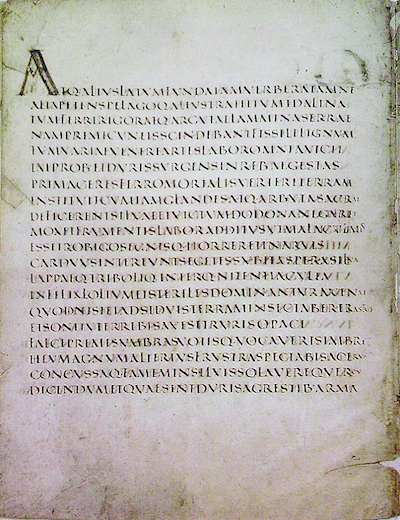 ATQ·ALIVSLATVMFVNDAIAMVERBERATAMNE
ALTAPETENSPELAGOQ·ALIVSTRAHITVMIDALINA
TVMFERRIRIGORATQ·ARGVTAELAMMINASERRAE
NAMPRIMICVNEISSCINDEBANTFISSILELIGNVM
TVMVARIAEVENEREARTESLABOROMNIAVICIT
INPROBEETDVRISSVRGENSINREBEGESTAS
PRIMACERESFERROMORTALISVERTERETERRAM
INSTITVITCVMIAMGLANDESATQ·ARBVTASACRAE
DEFICERENTSILVAEETVICTVMDODONANEGARET
MOXETFRVMENTISLABORADDITVSVTMALACVLMOS
ESSETROBIGOSEGNISQ·HORRERETINARVIS
CARDVVSINTEREVNTSEGETESSVBITASPERASILVA
LAPPAEQ·TRIBOLIQ·INTERQ·NITENTIACVLTA
INFELIXLOLIVMETSTERILESDOMINANTVRAVENAE
QVODNISIETADSIDVISTERRAMINSECTABERERASTRIS
ETSONITVTERREBISAVESETRVRISOPACI
FALCEPREMESVMBRASVOTISQ·VOCAVERISIMBRE
HEVMAGNVMALTERIVSFRVSTRASPECTABISACERV
CONCVSSAQ·FAMEMINSILVISSOLAVEREQVERCV
DICENDVMETQVAESINTDVRISAGRESTIBARMA